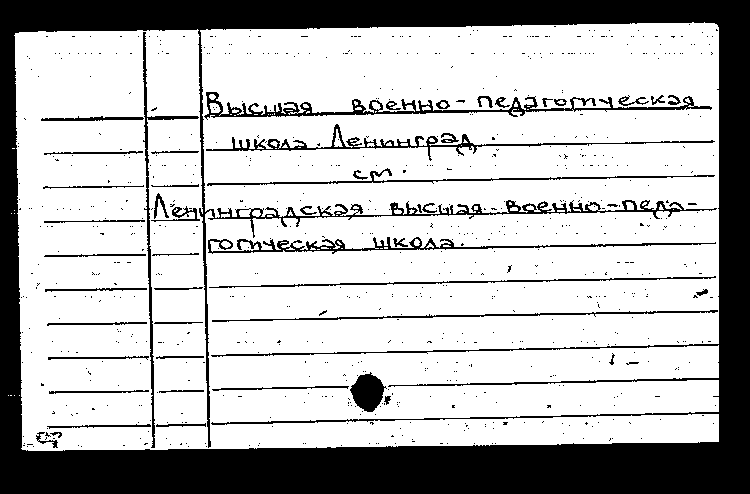 Высшая военно-педагогическая
школа. Ленинград.
см.
Ленинградская высшая военно-педа-
гогическая школа.